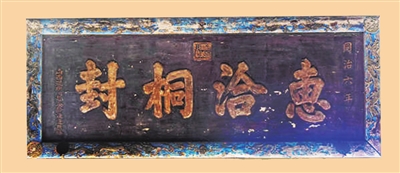 同治六年
惠洽桐封